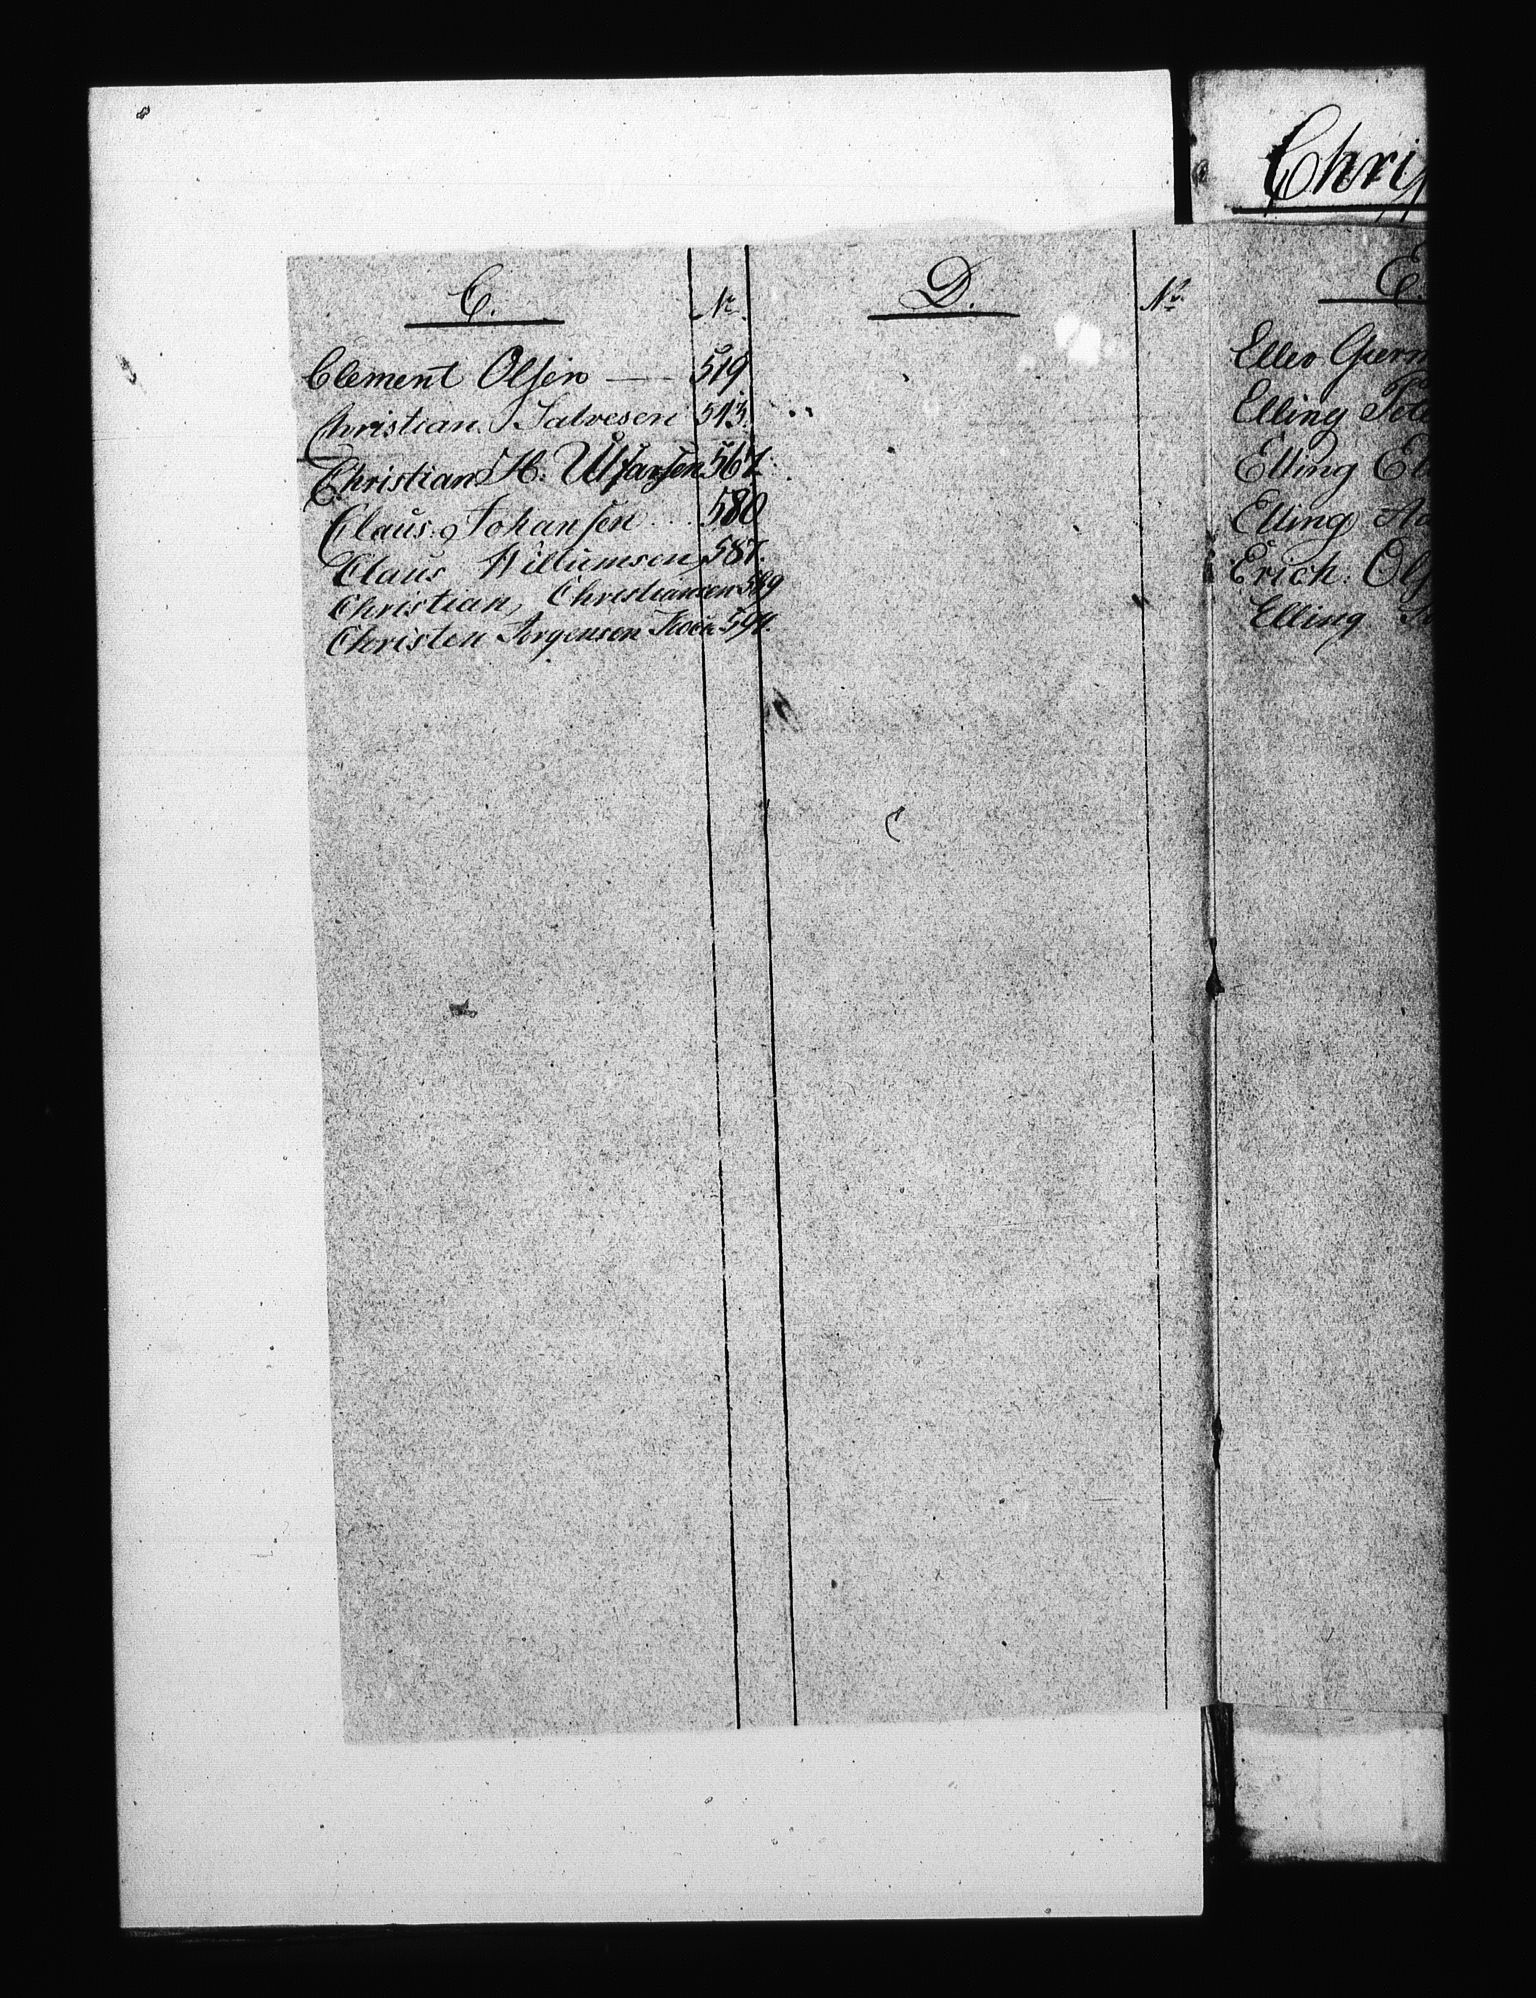 C. Nr.
Clement Olsen — 519
Christian Salvesen 543.
Christian H. 567.
Claus Johansen 580
Claus Williumsen 587.
Christian Christiansen 589
Christen Jørgensen 594
D. Nr.
Chris
E.
Elling
Elling
Elling
Erich Ols
Elling